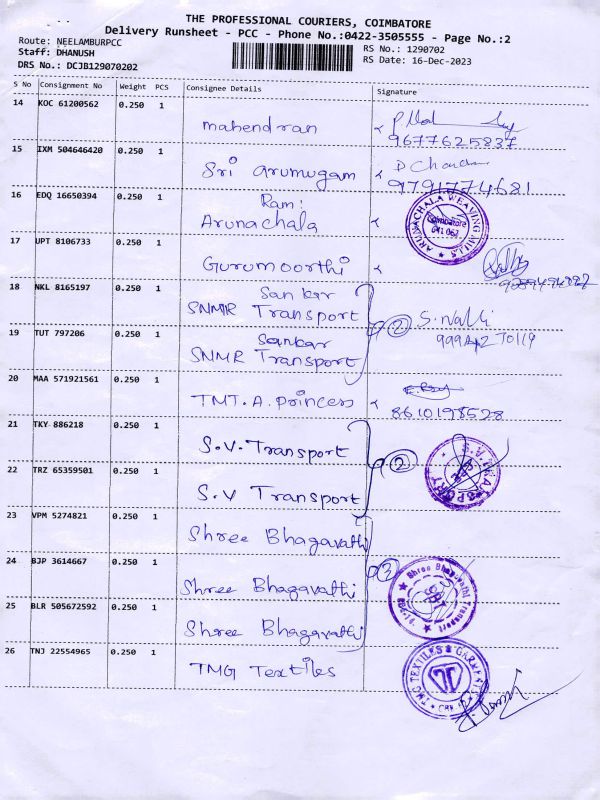 THE PROFESSIONAL COURIERS, COIMBATORE
Delivery Runsheet - PCC - Phone No.:0422-3505555 - Page No.:2
Route: NEELAMBURPCC
Staff: DHANUSH
DRS No.: DCJB129070202
RS No.: 1290702
RS Date: 16-Dec-2023
S No Consignment No Weight PCS Consignee Details Signature
14 KOC 61200562 0.250 1
mahendran
9677625837
15 IXM 504646420 0.250 1
Sri Arumugam D
9791774681
16 EDQ 16650394 0.250 1 Ram:
Arunachala
ARUNACHALA WEAVING MILLS
Coimbatore
641 062
17 UPT 8106733 0.250 1
Gurumoorthi
18 NKL 8165197 0.250 1 Sankar
SNMR Transport
2 S.
19 TUT 797206 0.250 1 Sankar
SNMR Transport
20 MAA 571921561 0.250 1
TMT.A.princess
8610198528
21 TKY 886218 0.250 1
S.V.Transport
2
22 TRZ 65359501 0.250 1
S.V Transport
23 VPM 5274821 0.250 1
Shree Bhagavathi
24 BJP 3614667 0.250 1
Shree Bhagavathi
3
Shree Bhagavathi Transport
SBT
25 BLR 505672592 0.250 1
Shree Bhagavathi
26 TNJ 22554965 0.250 1
TMG Textiles
TMG TEXTILES &